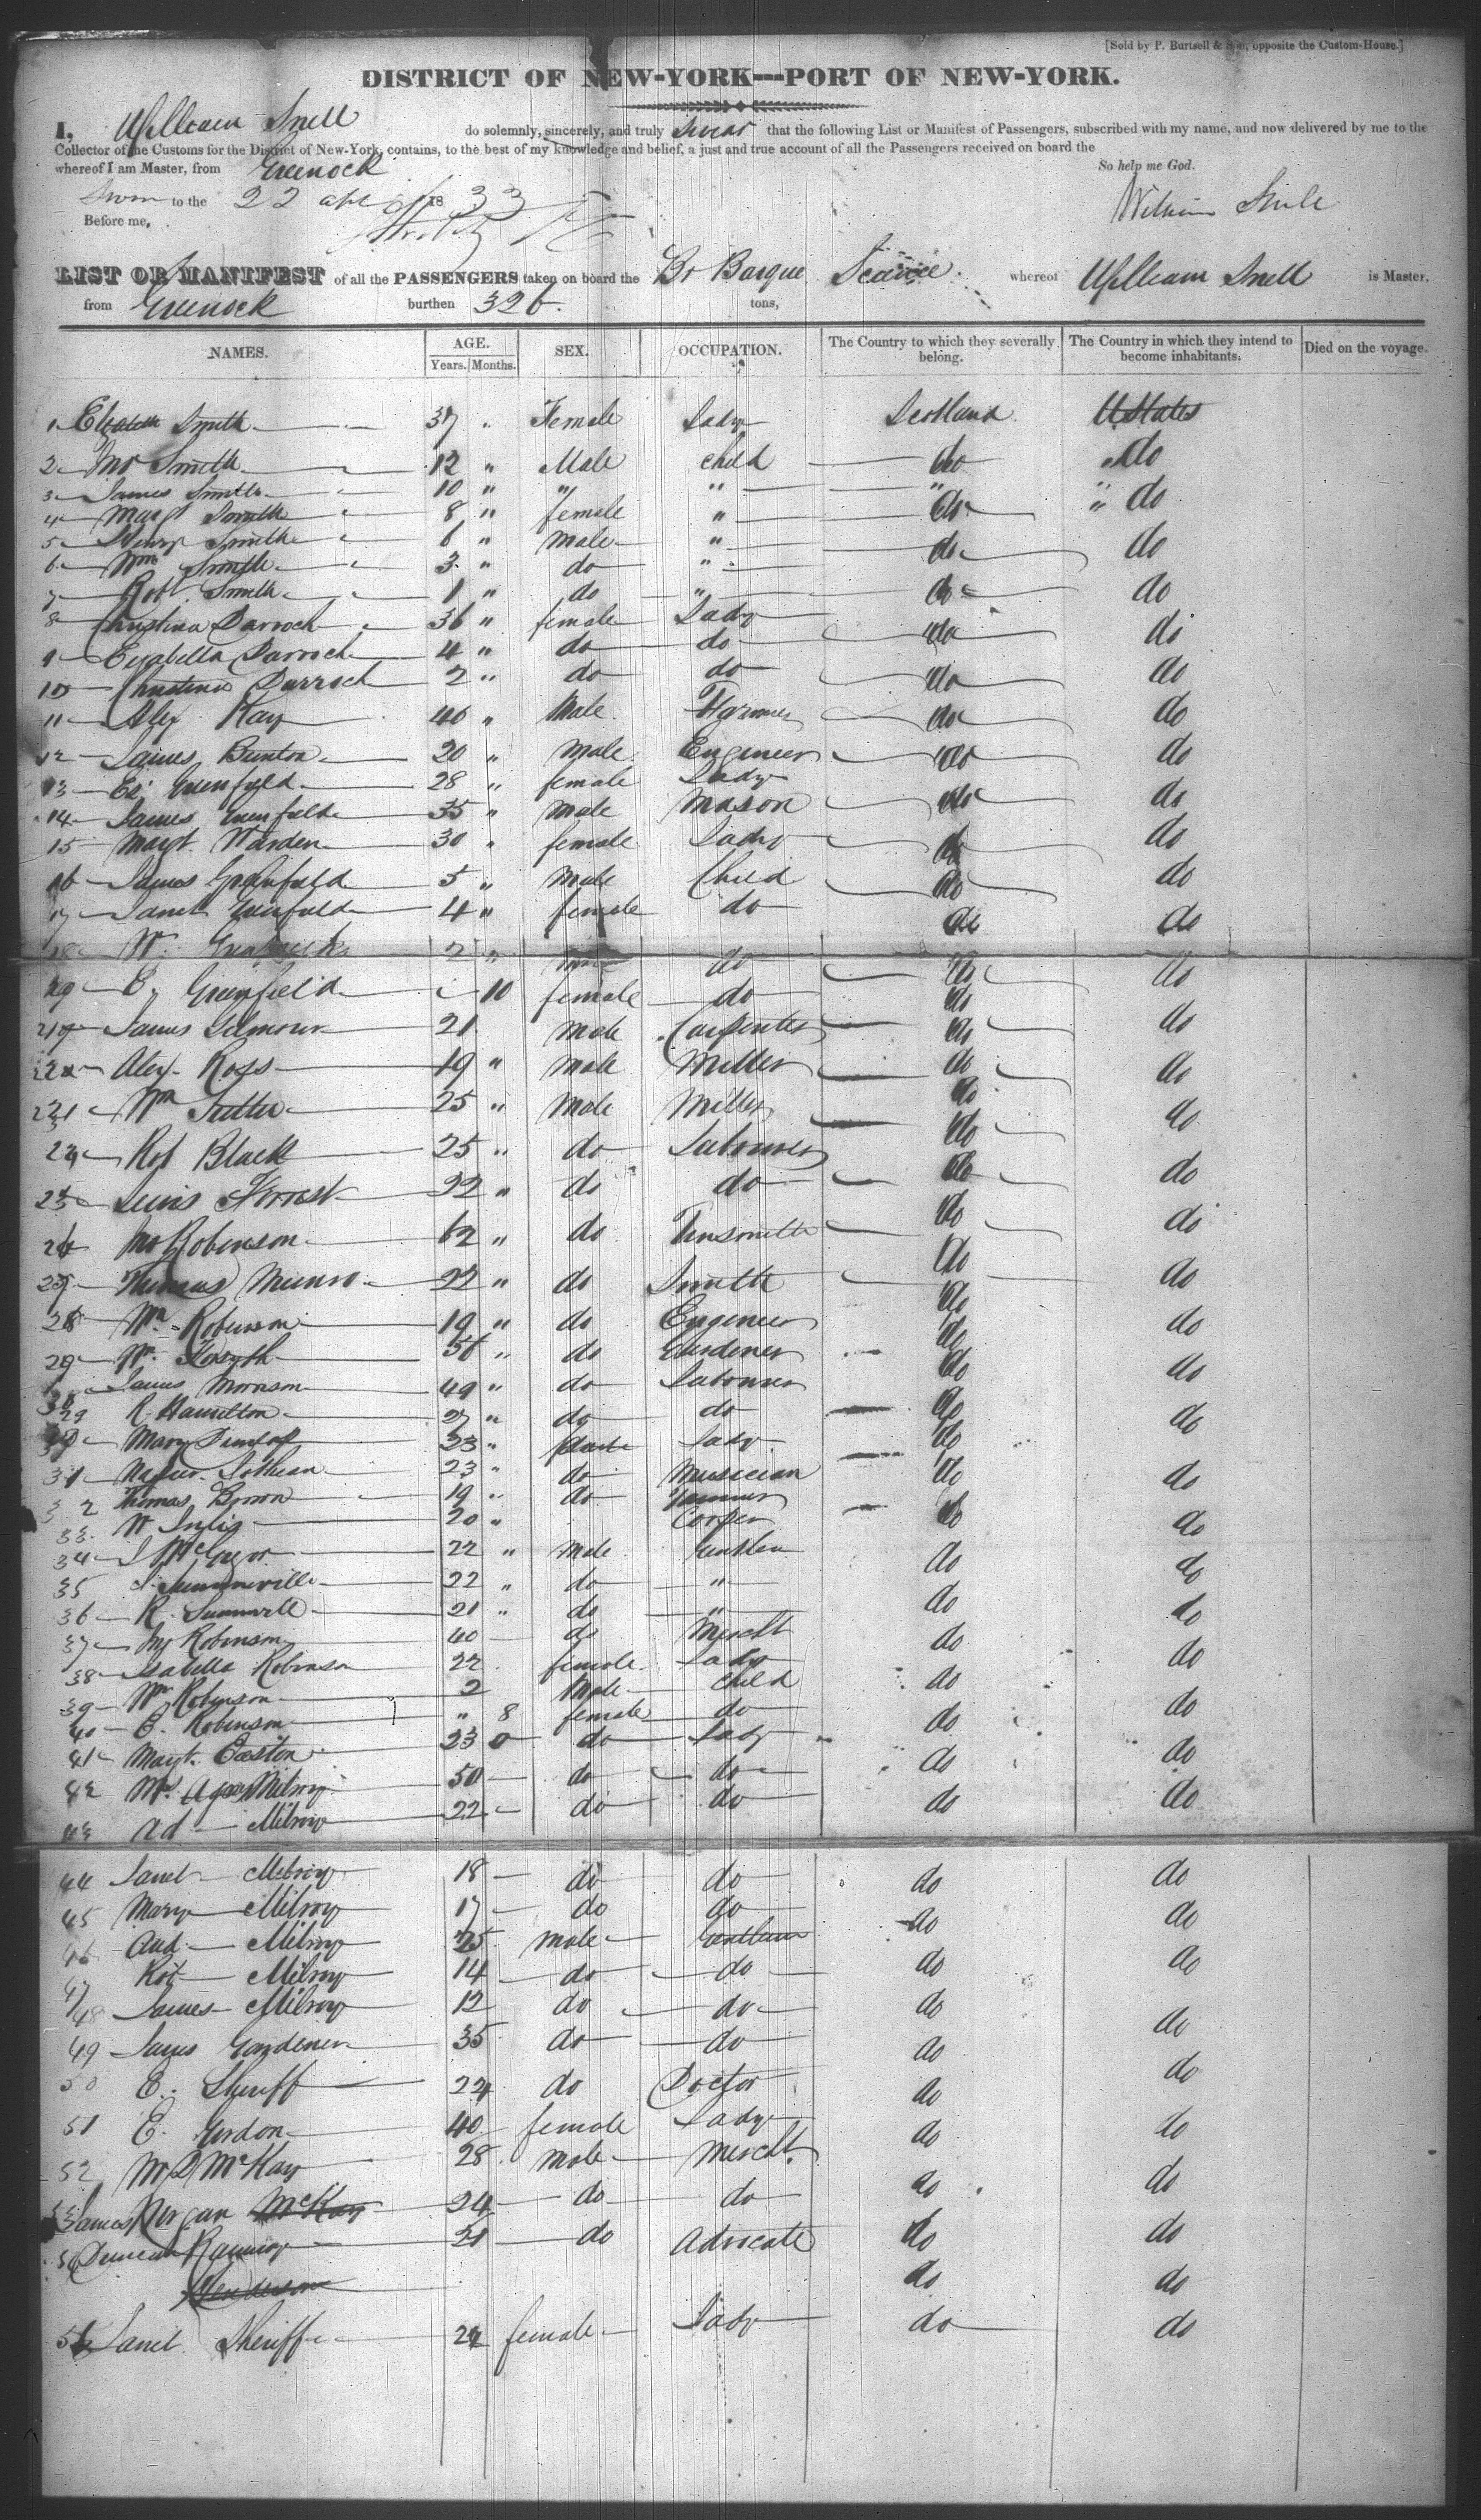 [Sold by P. Burtsell & Son, opposite the Custom-House.]
DISTRICT OF NEW-YORK---PORT OF NEW-YORK.
I, William Snell do solemnly, sincerely, and truly swear that the following List or Manifest of Passengers, subscribed with my name, and now delivered by me to the
Collector of the Customs for the District of New-York, contains, to the best of my knowledge and belief, a just and true account of all the Passengers received on board the
whereof I am Master, from Greenock So help me God.
Sworn to the 22 apl 1833
William Snell
Before me,
LIST OR MANIFEST of all the PASSENGERS taken on board the Br Barque whereof William Snell is Master,
from Greenock burthen 326 tons,
NAMES. AGE. SEX. OCCUPATION. The Country to which they severally belong. The Country in which they intend to become inhabitants. Died on the voyage.
Years. Months.
1 Elizabeth Smith 37 " Female Lady Scotland U States
2 Jno Smith 12 " Male child do do
3 James Smith 10 " " " " "
4 Margt Smith 8 " female " do do
5 Henry Smith 6 " male " do do
6 Wm Smith 3 " do "
7 Robt Smith 1 " do " do do
8 Christina Darroch 36 " female Lady do do
9 Isabella Darroch 4 " do do
10 Christina Darroch 2 " do do do do
11 Alex Kay 46 " Male Farmer do do
12 James Bunton 20 " male Engineer do do
13 Eliz Greenfield 28 " female Lady
14 James Greenfield 35 " male Mason do do
15 Margt Warden 30 " female Lady do do
16 James Greenfield 5 " male Child do do
17 Janet Greenfield 4 " female do do do
18 W. 2 " do do do
E. Greenfield 10 female do do
James Gilmour 21 male Carpenter do do
Alex Ross 19 " male Miller do do
Wm 25 " male Miller do do
Rob Black 25 " do Labourer do
Lewis Forrest 22 " do do do do
Jno Robinson 62 " do Tinsmith do do
Thomas Munro 22 " do Smith do do
Wm Robinson 19 " do Engineer do do
Wm Forsyth 56 " do Gardener do do
James Morrison 49 " do Labourer do
R. Hamilton 27 " do do do do
Mary Dunlop 23 " Lady do
31 Lothian 23 " do Musician do do
32 Thomas Brown 19 " do
33 W Inglis 20 " Cooper do do
34 J McGregor 22 " male do do
35 Summerville 22 " do "
36 R. Summerville 21 " do " do do
37 Jno Robinson 40 do Mercht do do
38 Isabella Robinson 22 female Lady
39 Wm Robinson 2 Male child do do
40 E. Robinson " 8 female do
41 Margt Easton 23 0 do Lady do do
42 Mrs Agnes Milroy 50 do do do do
43 Ad Milroy 22 do do do do
44 Janet Milroy 18 do do do do
45 Mary Milroy 17 do do do do
46 And. Milroy 25 male do do
47 Rob Milroy 14 do do do
48 James Milroy 12 do do do do
49 James Gardener 35 do do do do
50 E. Sheriff 24 do Doctor do
51 E. Gordon 40 female Lady do do
52 McKay 28 male mercht do do
James Morgan McKay 24 do do do do
Duncan 21 do Advocate do do
Henderson
Janet Sheriff 24 female Lady do do